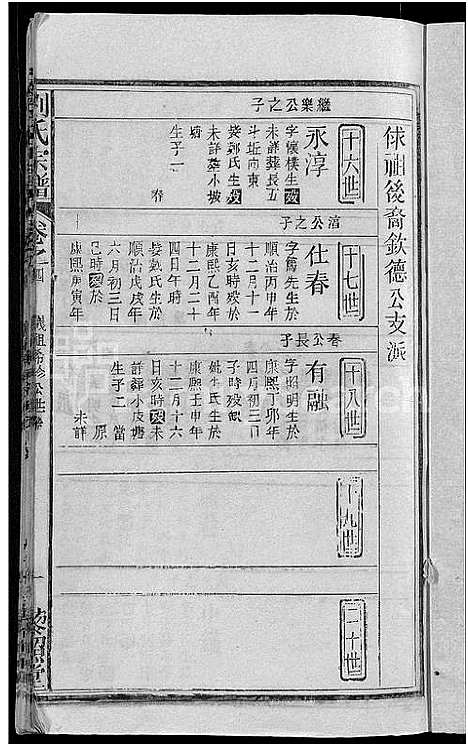 俅祖後裔欽德公支派
十六世
繼樂公之子
永淳
字懷樸生歿
未詳葬長五
斗坵向東
娶鄭氏生歿
未詳葬小坡
塘
生子一
春
十七世
淳公之子
仕春
字為先生於
順治丙申年
十二月十一
日亥時歿於
康熙乙酉年
四月二十
日午時
娶戴氏生於
順治戊戌年
六月初三日
巳時歿於
康熙庚寅年
十八世
春公長子
有融
字昭明生於
康熙丁卯年
四月初三日
子時歿缺
姚氏生於
康熙壬申年
十二月十六
日亥時歿未
詳葬小皮塘
生子二
當
原
未詳
十九世
二十世
劉氏宗譜
卷之四
儀祖希珍公世系
一
藜照堂